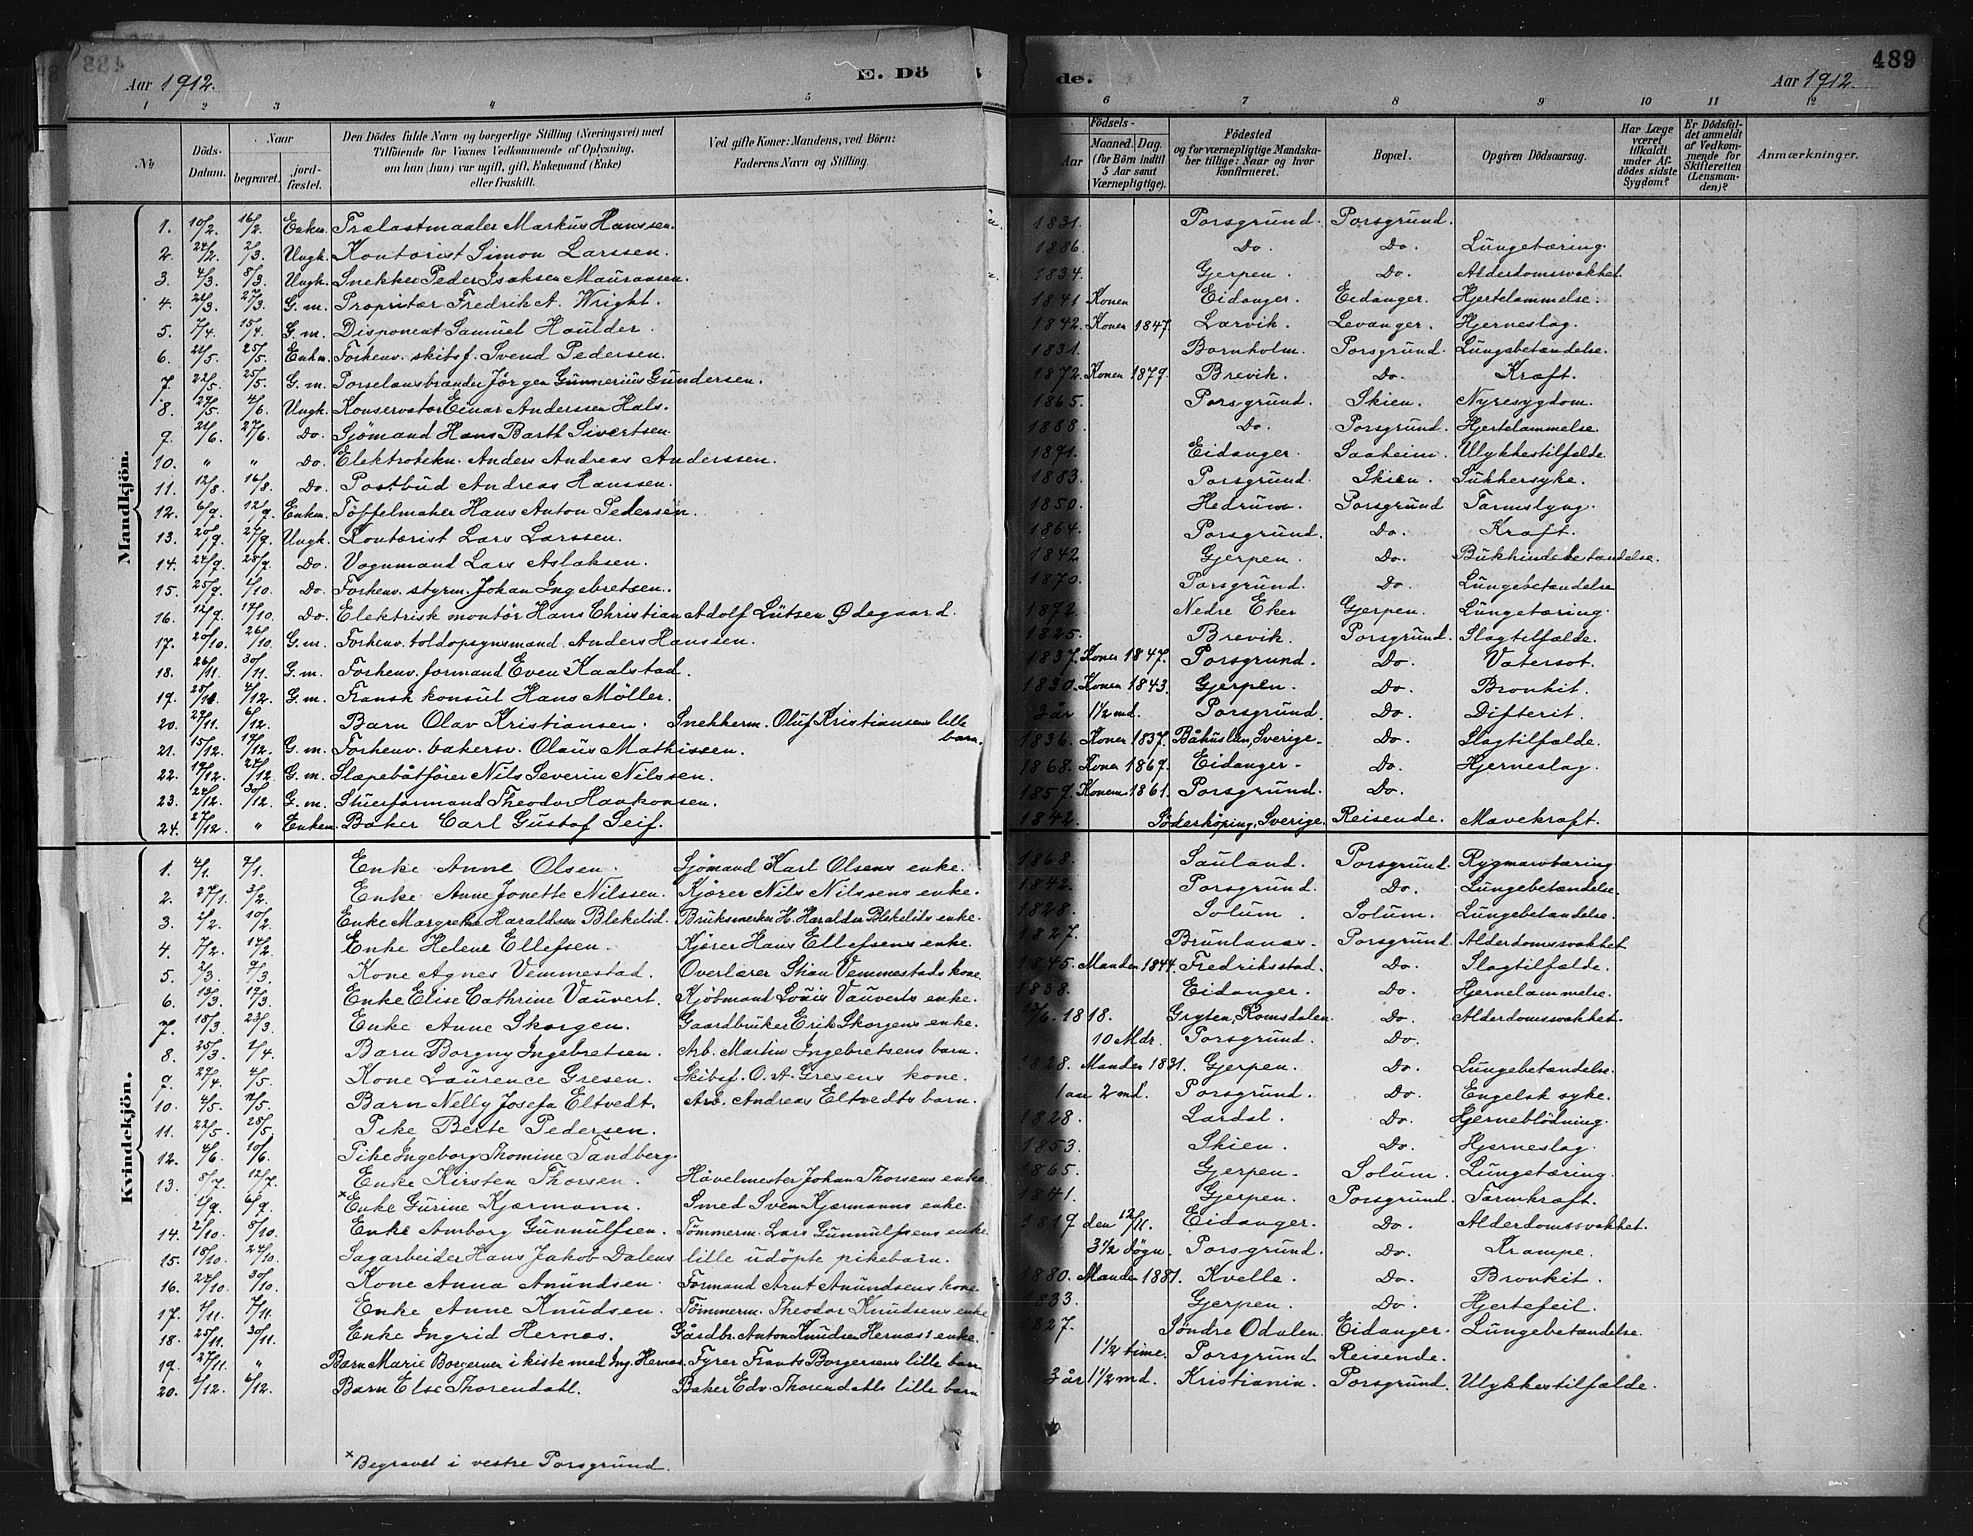 489
Aar 1912. E. Dö de. Aar 1912.
1 2 3 4 5 6 7 8 9 10 11 12
№ Döds-Datum. Naar begravet. jordfæstet. Den Dödes fulde Navn og borgerlige Stilling (Næringsvei) med Tilföiende for Voxnes Vedkommende af Oplysning, om han (hun) var ugift, gift, Enkemand (Enke) eller fraskilt. Ved gifte Koner: Mandens, ved Börn: Faderens Navn og Stilling. Födsels- Aar Maaned. Dag. (for Börn indtil 5 Aar samt Værnepligtige). Födested og for værnepligtige Mandskaber tillige: Naar og hvor konfirmeret. Bopæl. Opgiven Dödsaarsag. Har Læge været tilkaldt under Afdödes sidste Sygdom? Er Dödsfaldet anmeldt af Vedkommende for Skifteretten (Lensmanden)? Anmærkninger.
Mandkjön.
1. 10/2. 16/2. Enkm. Trælastmaaler Markus Hanssen. 1831. Porsgrund. Porsgrund.
2. 24/2. 2/3. Ungk. Kontorist Simon Larssen. 1886. Do. Do. Lungetæring.
3. 4/3. 8/3. Ungk. Snekker Peder Isaksen Mauraasen. 1834. Gjerpen. Do. Alderdomssvakhet.
4. /3. 27/3. G. m. Proprietær Fredrik A. Wright. 1841 Konen Eidanger. Eidanger. Hjertelammelse.
5. 7/4. 15/4. G. m. Disponent Samuel Houlder. 1842. Konen 1847. Larvik. Levanger. Hjerneslag.
6. 21/5. 25/5. Enkm. Forhenv. skibsf. Svend Pedersen. 1831. Bornholm. Porsgrund. Lungebetændelse.
7. 22/5. 25/5. G. m. Porselænsbrænder Jörgen Gunnerius Gundersen. 1872. Konen 1879. Brevik. Do. Kræft.
8. 29/5. 4/6. Ungk. Konservator Einar Anderssen Hals. 1865. Porsgrund. Skien. Nyresygdom.
9. 21/6. 27/6. Do. Sjömand Hans Barth Sivertsen. 1888. Do. Porsgrund. Hjertelammelse.
10. " " Do. Elektrotekn. Anders Andreas Anderssen. 1891. Eidanger. Saaheim. Ulykkestilfælde
11. 12/8. 16/8. Do. Postbud Andreas Hanssen. 1883. Porsgrund. Skien. Sukkersyke.
12. 6/9. 12/9. Enkm. Töffelmaker Hans Anton Pedersen. 1850. Hedrum. Porsgrund Tarmslyng.
13. 20/9. 24/9. Ungk. Kontorist Lars Larssen. 1864. Porsgrund. Do. Kræft.
14. 24/9. 28/9. Do. Vognmand Lars Aslaksen. 1842 Gjerpen. Do. Bukhindebetændelse.
15. 25/9. 1/10. Do. Forhenv. styrm. Johan Ingebretsen. 1870. Porsgrund. Do. Lungebetændelse
16. 12/9. 17/10. Do. Elektrisk montör Hans Christian Adolf Lützen Ødegaard. 1872. Nedre Eker Gjerpen. Lungetæring.
17. 20/10. 26/10. G. m. Forhenv. toldopsynsmand Anders Hanssen. 1825. Brevik. Porsgrund. Slagtilfælde.
18. 26/11. 30/11. G. m. Forhenv. formand Even Kaalstad. 1837. Konen 1847. Porsgrund. Do. Vatersot.
19. 28/11. 4/12. G. m. Fransk konsul Hans Möller. 1830. Konen 1843. Gjerpen. Do. Bronkit.
20. 29/11. 6/12. Barn Olav Kristiansen. Snekkerm. Oluf Kristiansens lille barn. 3 år 1½ md. Porsgrund. Do. Difterit.
21. 15/12. 19/12. G. m. Forhenv. bakersv. Olaus Mathissen. 1836. Konen 1837. Båhuslen, Sverige. Do. Slagtilfælde.
22. 19/12. 24/12. G. m. Slæpebåtförer Nils Severin Nilssen. 1868. Konen 1869. Eidanger. Do. Hjerneslag.
23. 24/12. 30/12. G. m. Stuerformand Theodor Haakonsen. 1859. Konen 1861. Porsgrund. Do.
24. 27/12. " Enkem. Baker Carl Gustaf Seif. 1842. Söderköping, Sverige. Reisende. Mavekræft.
Kvindekjön.
1. 4/1. 9/1. Enke Anne Olsen. Sjömand Karl Olsens enke. 1868. Sauland. Porsgrund. Rygmarvtæring
2. 27/1. 3/2. Enke Anne Jonette Nilssen. Kjörer Nils Nilssens enke. 1842. Porsgrund. Do. Lungebetændelse.
3. /2. 10/2. Enke Margrethe Haraldsen Blekelid. Bruksmester H. Haraldsen Blekelids enke. 1828. Solum. Solum. Lungebetændelse.
4. 7/2. 14/2. Enke Helene Ellefsen. Kjörer Hans Ellefsens enke. 1827. Brunlanes. Porsgrund. Alderdomssvakhet
5. 2/3. 9/3. Kone Agnes Vemmestad. Overlærer Stian Vemmestads kone. 1845. Manden 1844. Fredriksstad. Do. Slagtilfælde.
6. 13/3. 19/3. Enke Elise Cathrine Vauvert. Kjöbmand Louis Vauverts enke. 1838. Eidanger. Do. Hjernelammelse.
7. 18/3. 23/3. Enke Anne Skorgen. Gaardbruker Erik Skorgens enke. /6. 1818. Gryten, Romsdalen. Do. Alderdomssvakhet.
8. 25/3. 1/4. Barn Borgny Ingebretsen. Arb. Martin Ingebretsens barn. 10 Mdr. Porsgrund. Do.
9. 29/4. 4/5. Kone Laurence Gresen. Skibsf. O. A. Gresens kone. 1828. Manden 1831. Gjerpen. Do. Lungebetændelse.
10. 4/5. /5. Barn Nelly Josefa Eltvedt. Arb. Andreas Eltvedts barn. 1 aar 2 md. Porsgrund. Do. Engelsk syke.
11. 22/5. 28/5. Pike Berte Pedersen. 1828. Lardal. Do. Hjerneblödning.
12. 4/6. 10/6. Pike Ingeborg Thomine Tandberg. 1853. Skien. Do. Hjerneslag.
13. 8/7. 12/7. Enke Kirsten Thorsen. Hövelmester Johan Thorsens enke 1865. Gjerpen. Solum. Lungetæring.
1/9. 6/9. ˣEnke Gurine Kjærmann. Smed Sven Kjærmanns enke. 1841. Gjerpen. Porsgrund. Tarmkræft.
14. 2/10. 8/10. Enke Amborg Gunnulfsen. Tömmerm. Lars Gunnulfsens enke. 1819 den 12/11. Eidanger. Do. Alderdomssvakhet.
15. 18/10. 24/10. Sagarbeider Hans Jakob Dalens lille udöpte pikebarn. 3½ dögn. Porsgrund. Do. Krampe.
16. 24/10. 30/10. Kone Anna Amundsen. Formand Arnt Amundsens kone. 1880. Manden 1881. Kvelle. Do. Bronkit.
17. 1/11. 7/11. Enke Anne Knudsen. Tömmerm. Theodor Knudsens enke 1833. Gjerpen. Do. Hjertefeil.
18. 25/11. 30/11. Enke Ingrid Hernæs. Gårdbr. Anton Knudsen Hernæs's enke. 1827. Söndre Odalen. Eidanger. Lungebetændelse.
19. 27/11. " Barn Marie Borgersen i kiste med Ing. Hernæs. Fyrer Frants Borgersens lille barn 1½ time. Porsgrund Reisende.
20. 1/12. 6/12. Barn Else Thorendahl. Baker Edv. Thorendahls lille barn 3 år 1½ md. Kristiania. Porsgrund. Ulykkestilfælde.
ˣBegravet i vestre Porsgrund.